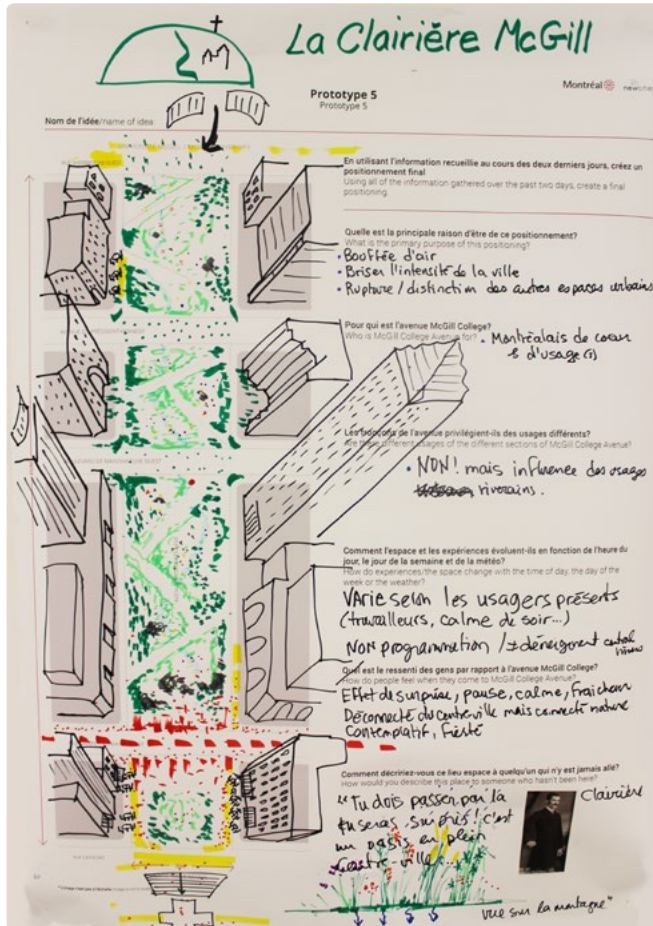 La Clairière McGill
Prototype 5
Prototype 5
Montréal
Nom de l'idée/name of idea
En utilisant l'information recueillie au cours des deux derniers jours, créez un
positionnement final
Using all of the information gathered over the past two days, create a final
positioning.
Quelle est la principale raison d'être de ce positionnement?
What is the primary purpose of this positioning?
• Bouffée d'air
• Briser l'intensité de la ville
• Rupture / distinction des autres espaces urbains
Pour qui est l'avenue McGill College?
Who is McGill College Avenue for?
• Montréalais de coeur
& d'usage(s)
Les tronçons de l'avenue privilégient-ils des usages différents?
Are there different usages of the different sections of McGill College Avenue?
• NON! mais influence des usages
riverains.
Comment l'espace et les expériences évoluent-ils en fonction de l'heure du
jour, le jour de la semaine et de la météo?
How do experiences/the space change with the time of day, the day of the
week or the weather?
Varie selon les usagers présents
(travailleurs, calme de soir...)
Non programmation / déneigement central
Quel est le ressenti des gens par rapport à l'avenue McGill College?
How do people feel when they come to McGill College Avenue?
Effet de surprise, pause, calme, fraicheur
Déconnecté du centreville mais connecté nature
Contemplatif, fierté
Comment décririez-vous ce lieu espace à quelqu'un qui n'y est jamais allé?
How would you describe this place to someone who hasn't been here?
"Tu dois passer par là
tu seras surpris! c'est
un oasis en plein
Centre-ville...
Clairière
vue sur la montagne"